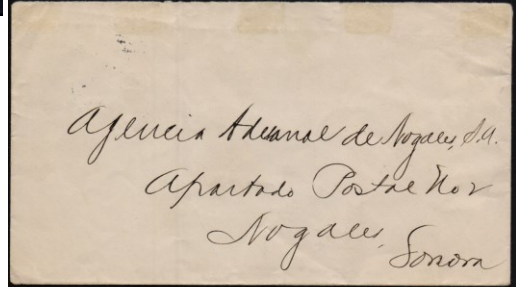 Agencia Aduanal de Nogales, S.A.
Apartado Postal No 2
Nogales,
Sonora